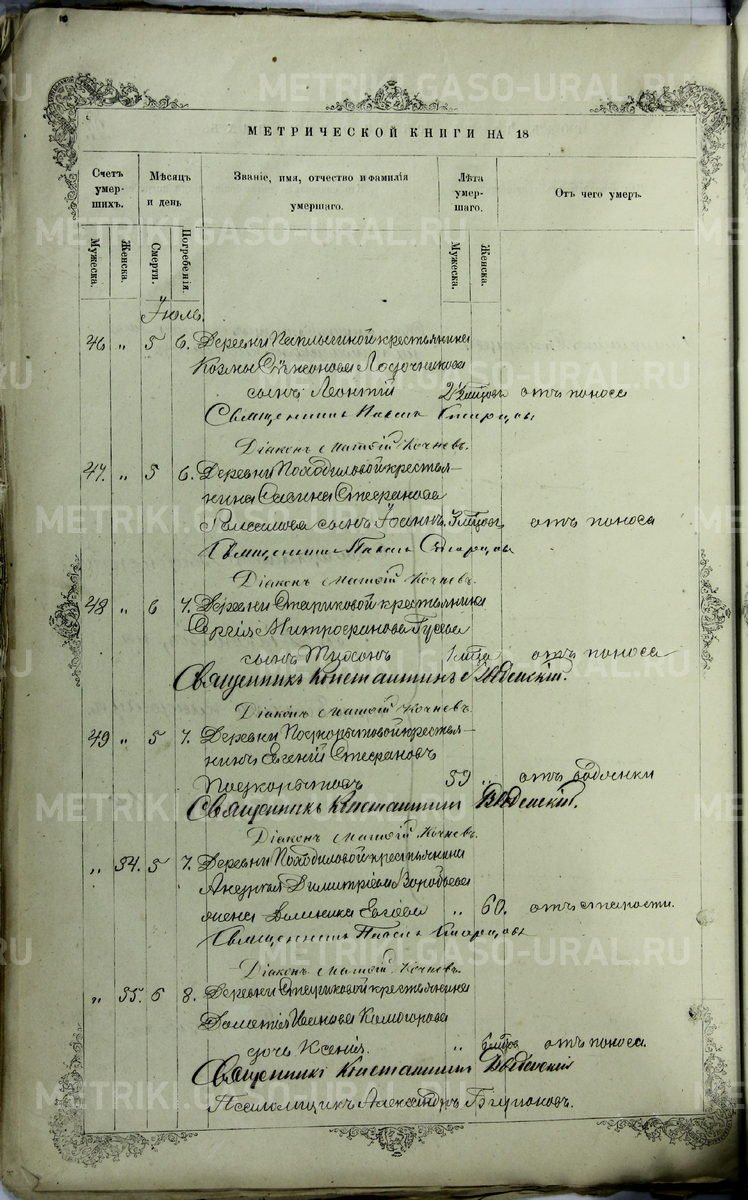 МЕТРИЧЕСКОЙ КНИГИ НА 18
Счетъ умер- шихъ.
Мѣсяцъ и день
Званіе, имя, отчество и фамилія умершаго.
Лѣта умер- шаго.
Отъ чего умеръ.
Мужеска.
Женска.
Смерти.
Погребенія.
Мужеска.
Женска.
Іюль.
46 „ 5 6. Деревни крестьянина
Козмы Симеонова Лодочникова
сынъ Леонтій 2½ мѣсяцъ отъ поноса
Священникъ Павелъ Старцовъ
Діаконъ Матѳій Кочневъ.
47. „ 5 6. Деревни Походиловой крестья-
нина Саввина Стефанова
сынъ Іоаннъ 3 мѣсяцъ отъ поноса
Священникъ Павелъ Старцовъ
Діаконъ Матѳій Кочневъ.
48 „ 6 7. Деревни Стариковой крестьянина
Сергія Митрофанова Гусева
сынъ 1 мѣсца отъ поноса
Священникъ Константинъ Введенскій.
Діаконъ Матѳій Кочневъ.
49 „ 5 7. Деревни Подкорытовой крестья-
нинъ Евгеній Стефановъ
Подкорытовъ 59 „ отъ водянки
Священникъ Константинъ Введенскій.
Діаконъ Матѳій Кочневъ.
„ 34. 5 7. Деревни Походиловой крестьянина
Андрея Димитріева Воробьева
жена 60. отъ старости.
Священникъ Павелъ Старцовъ
Діаконъ Матѳій Кочневъ.
„ 35. 6 8. Деревни Стариковой крестьянина
Иванова Комогорова
дочь Ксенія. „ 6 мѣсцовъ отъ поноса.
Священникъ Константинъ Введенскій
Псаломщикъ Александръ
METRIKI.GASO-URAL.RU